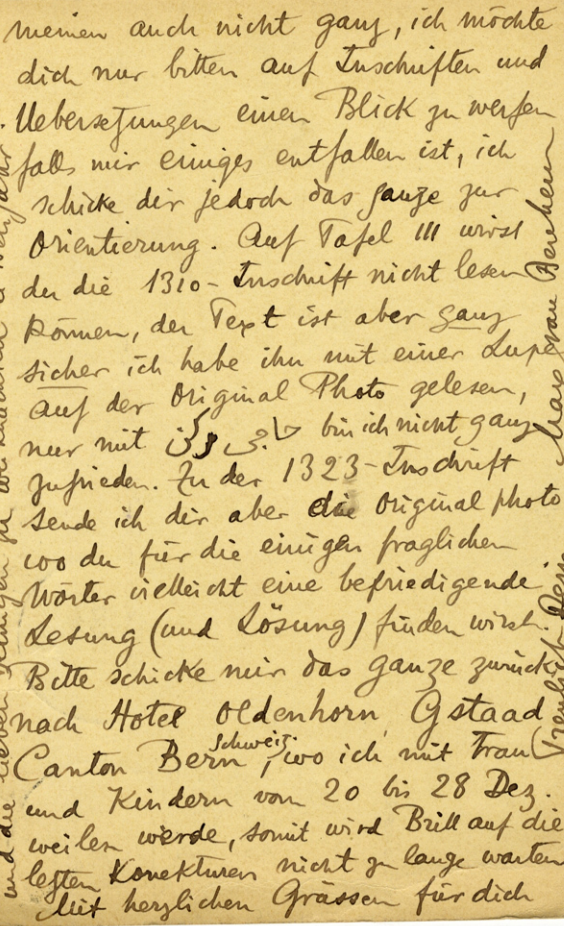 meinen auch nicht ganz, ich möchte
dich nur bitten auf Inschriften und
Uebersetzungen einen Blick zu werfen
falls mir einiges entfallen ist, ich
schicke dir jedoch das ganze zur
Orientierung. Auf Tafel III wirst
du die 1310-Inschrift nicht lesen
können, der Text ist aber ganz
sicher ich habe ihn mit einer Lupe
auf der Original Photo gelesen,
nur mit bin ich nicht ganz
zufrieden. Zu der 1323-Inschrift
sende ich dir aber die Original photo
wo du für die einigen fraglichen
Wörter vielleicht eine befriedigende
Lesung (und Lösung) finden wirst.
Bitte schicke mir das ganze zurück
nach Hotel Oldenhorn, Gstaad,
Canton Bern, Schweiz, wo ich mit Frau
und Kindern vom 20 bis 28 Dez.
weilen werde, somit wird Brill auf die
letzten Korrekturen nicht zu lange warten
Mit herzlichen Grüssen für dich
und die lieben
Max van Berchem